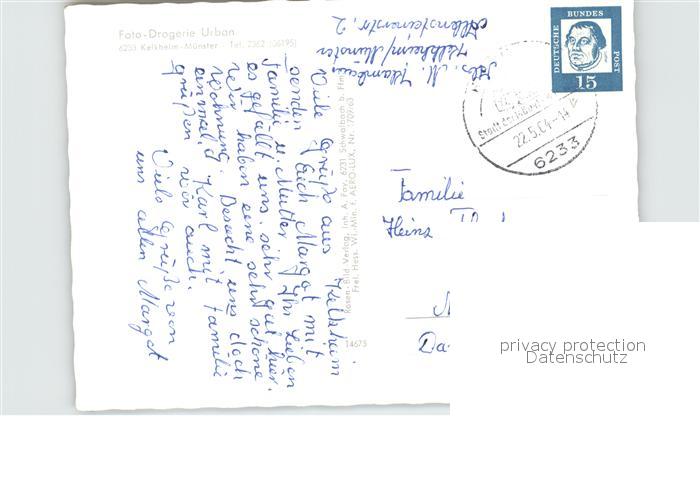 Foto-Drogerie Urban
6233 Kelkheim-Münster · Tel. 2362 (06195)
Abs. M.
Kelkheim/Münster
2
DEUTSCHE BUNDES POST
15
22.5.64-14
6233
Viele Grüße aus Kelkheim
senden Euch Margot mit
Familie u. Mutter. Ihr Lieben
es gefällt uns sehr gut hier.
Wir haben eine sehr schöne
Wohnung. Besucht uns doch
einmal. Karl mit Familie
grüßen wir auch.
Viele Grüße von
uns allen Margot
Rosen-Bild Verlag, Inh. A. Fay, 6231 Schwalbach b. Ffm.
Frei. Hess. Wi.-Min. f. AERO-LUX, Nr. 1709/63
14675
Familie
Heinz
Da
privacy protection
Datenschutz